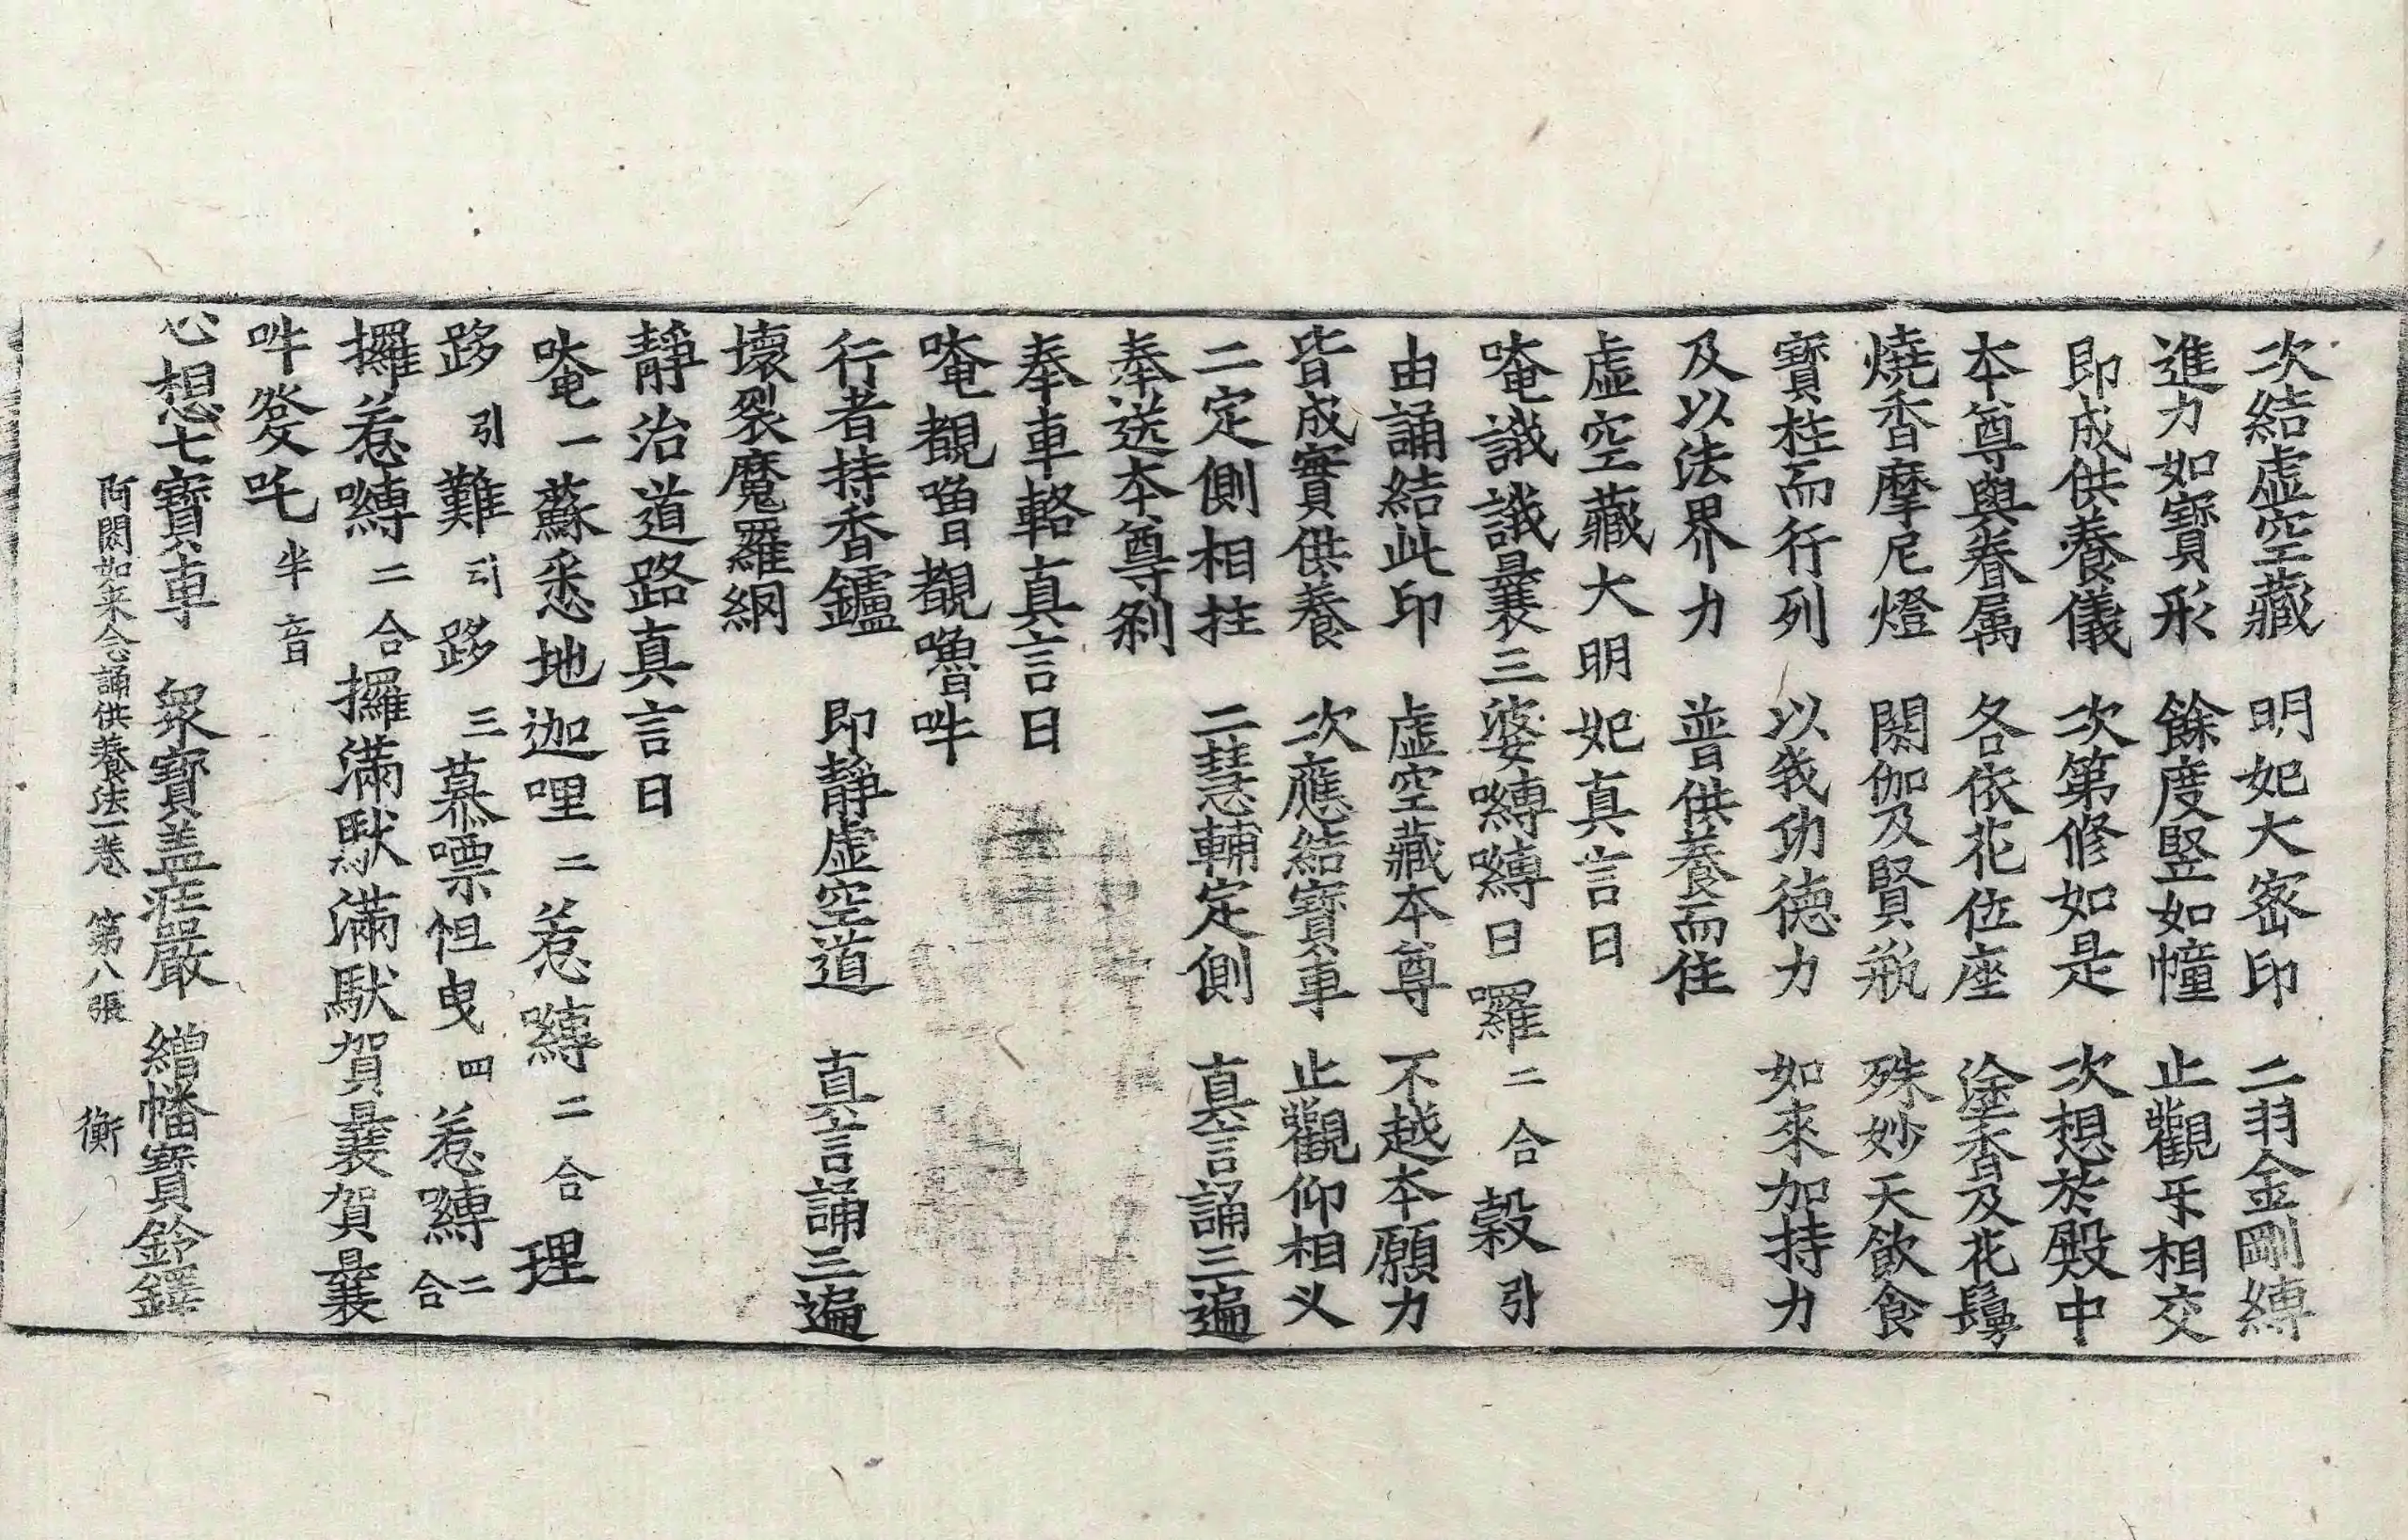 次結虛空藏　明妃大密印　二羽金剛縛
進力如寶形　餘度竪如幢　止觀牙相交
即成供養儀　次第修如是　次想於殿中
本尊與眷属　各依花位座　塗香及花鬘
燒香摩尼燈　閼伽及賢瓶　殊妙天飮食
寶柱而行列　以我功德力　如來加持力
及以法界力　普供養而住
虛空藏大明妃真言曰
唵誐誐曩三婆嚩嚩日囉二合穀引
由誦結此印　虛空藏本尊　不越本願力
皆成實供養　次應結寶車　止觀仰相叉
二定側相拄　二慧輔定側　真言誦三遍
奉送本尊剎
奉車輅真言曰
唵覩嚕覩嚕吽
行者持香鑪　即靜虛空道　真言誦三遍
壞裂魔羅網
靜治道路真言曰
唵一蘇悉地迦哩二惹嚩二合理
跢引難引跢三慕㗚怛曳四惹嚩二合
攞惹嚩二合攞滿馱滿馱賀曩賀曩
吽發吒半音
心想七寶車　衆寶盖莊嚴　繒幡寶鈴鐸
阿閦如来念誦供養法一卷　第八張　衡